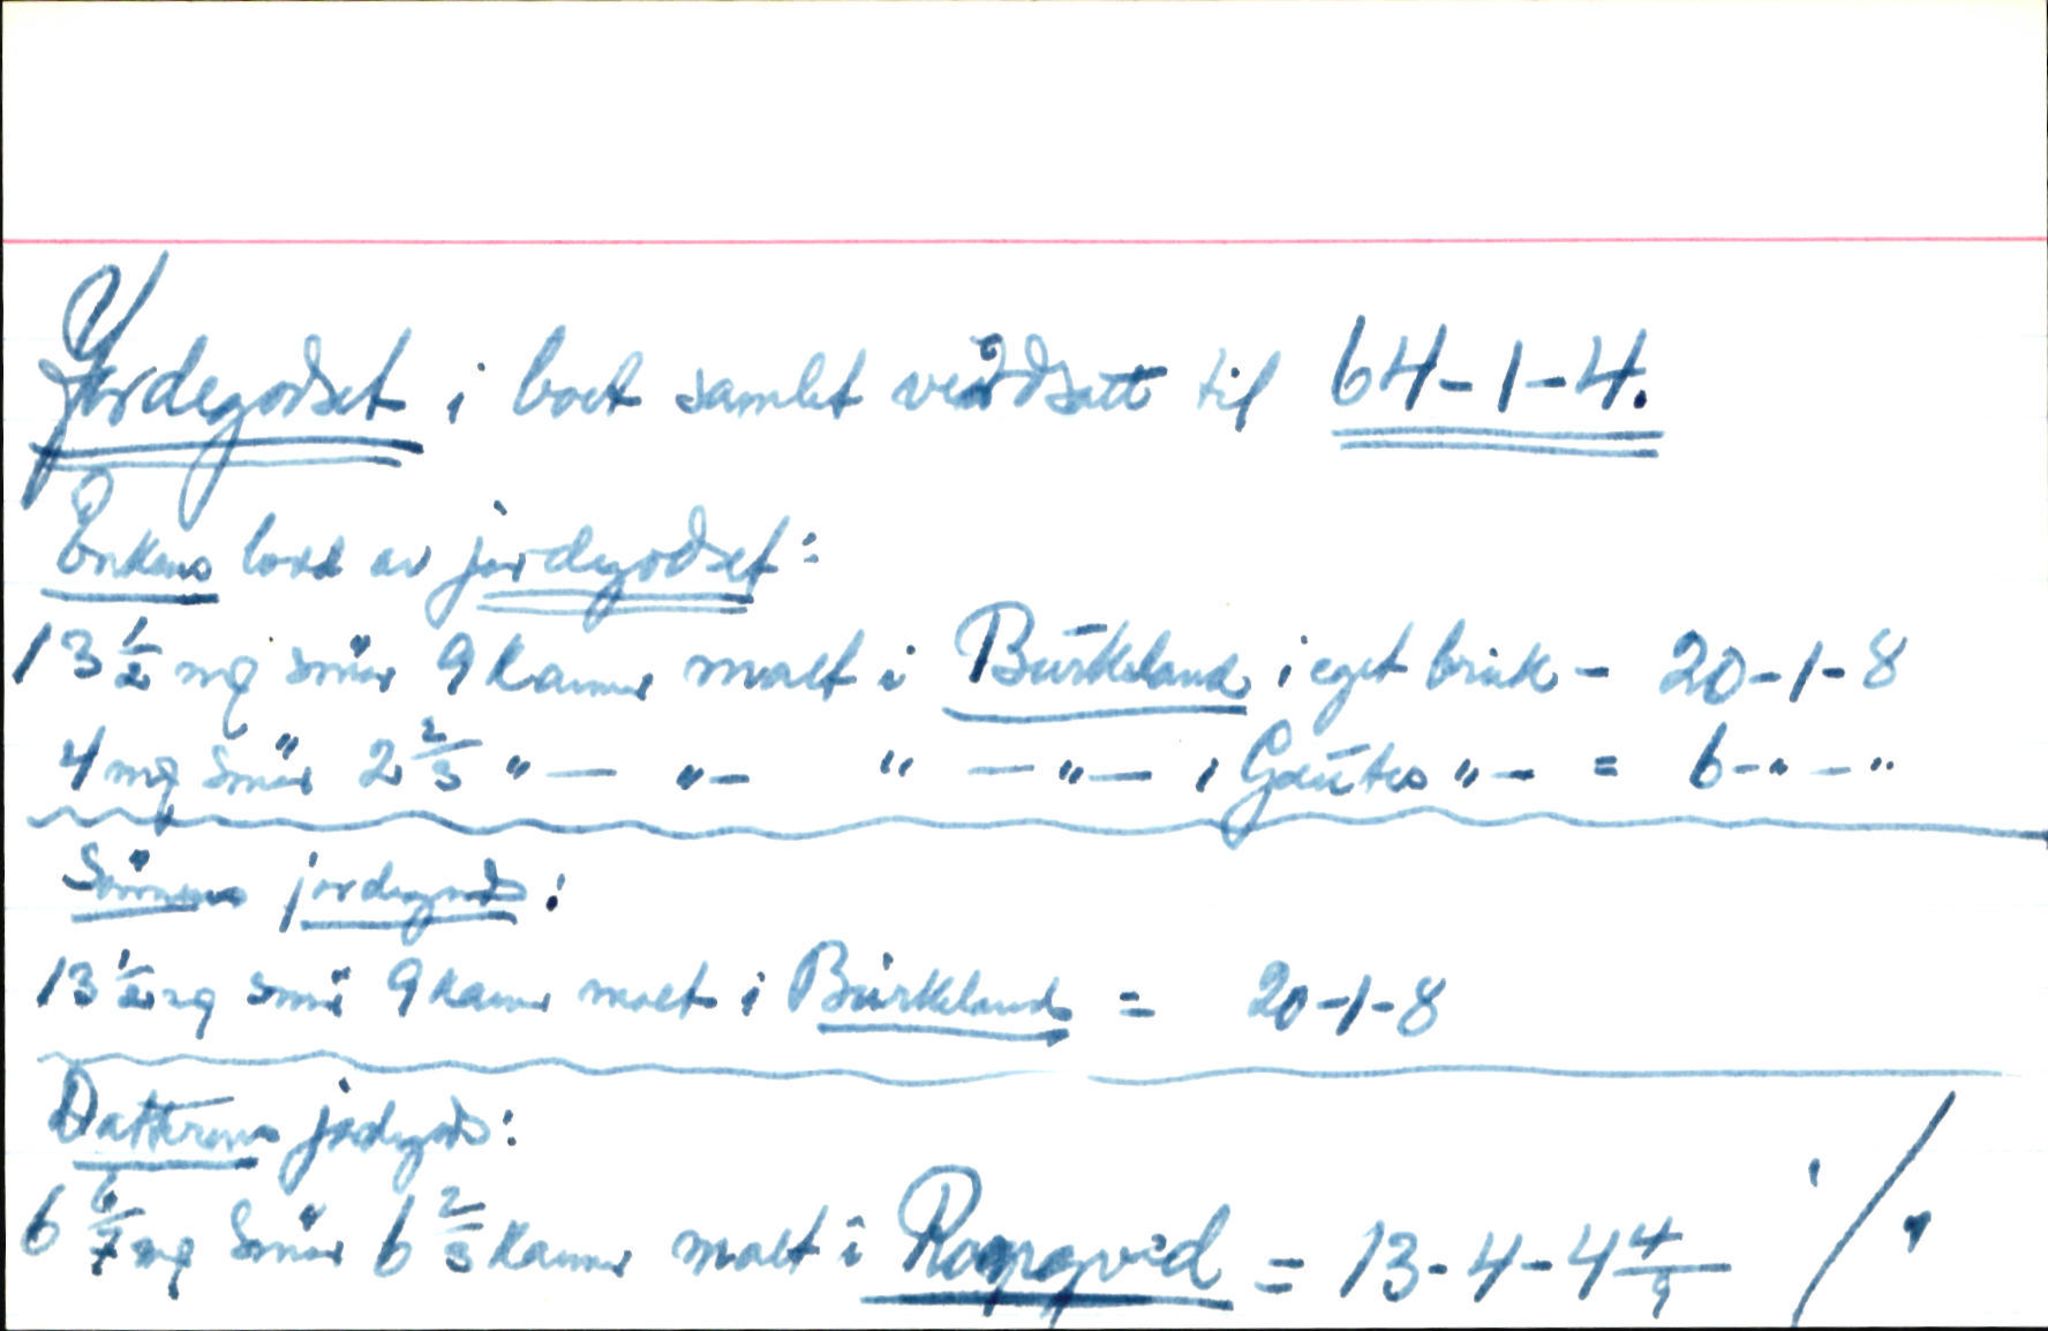 Jordegodset i boet samlet verdsatt til 64-1-4.
Enkens lodd av jordegodset:
13 1/2 mg smör 9 kanner malt i Bürkeland i eget bruk - 20-1-8
4 mg smör 2 2/3 " — " - " — " — i Gautes " - = 6 - " - "
Sönnens jordegods:
13 1/2 mg smör 9 kanner malt i Bürkeland = 20-1-8
Datterens jordegods:
6 6/7 mg smör 6 2/3 kanner malt i = 13-4-4 4/9 ./.